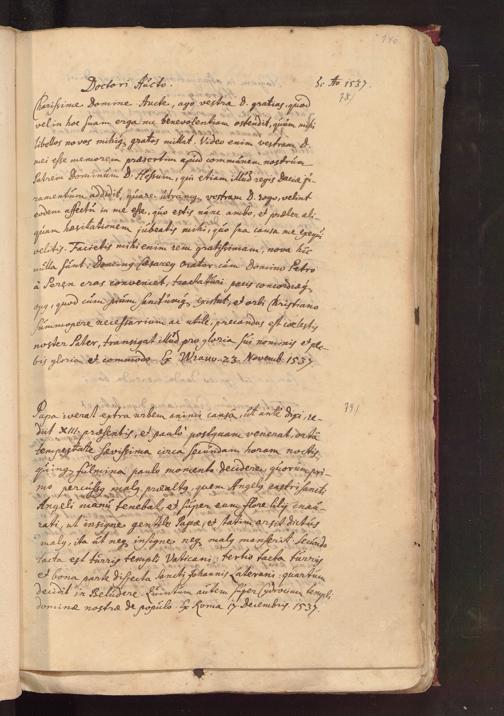 140
Doctori Aucto. Ex Ao 1537.
78/
Clarissime Domine Aucte, ago vestræ D. gratias, quod
vel in hoc suam erga me benevolentiam ostendit, quum mihi
libellos novos mihiq, gratos mittat. Video enim vestram D.
mei esse memorem præsertim apud communem nostrum
Patrem Dominum D. Hessum, qui etiam Illud regis Daciæ ju-
ramentum addidit, quare utramq, vestram D. rogo, velint
eodem affectu in me esse, quo estis nunc ambo, et præter ali-
quam hæsitationem jubeatis mihi, quo sua causa me exequi
velitis. Facietis mihi enim rem gratissimam, nova hic
nulla sunt, Domino Petro
à Peren eras conveniat, tractaturi pacis concordiæq,
opq, quod cum existat, et orbi Christiano
summopere necessarium ac utile, precandus est cœlestis
noster Pater, transigat illud pro gloria sui nominis et ple-
bis gloria et commodo Ex Wraw. 23. Novemb. 1537
79/
Papa iverat extra urbem animi causa, ut ante dixi, re-
dut XIII. præsentis, et paulo postquam venerat, orta
tempestate sævissima circa secundam horam noctis,
quinq, fulmina paulo momento decidere, quorum pri-
mo percussq malq præalto, quem Angelq castri sancti
Angeli manu tenebat, et super eam flore lilij inau-
rati, ut insigne gentis Papæ, et statim arsit dictus
malq, ita ut neq, insigne, neq, malq manserit. Secundo
tacta est turris templi Vaticani, tertio tacta turris
et bona parte disjecta Sancti Johannis Lateranis. quartum
decidit in Beluidere. Quintum autem super templi
dominæ nostræ de populo. Ex Roma 17 Decembris. 1537.